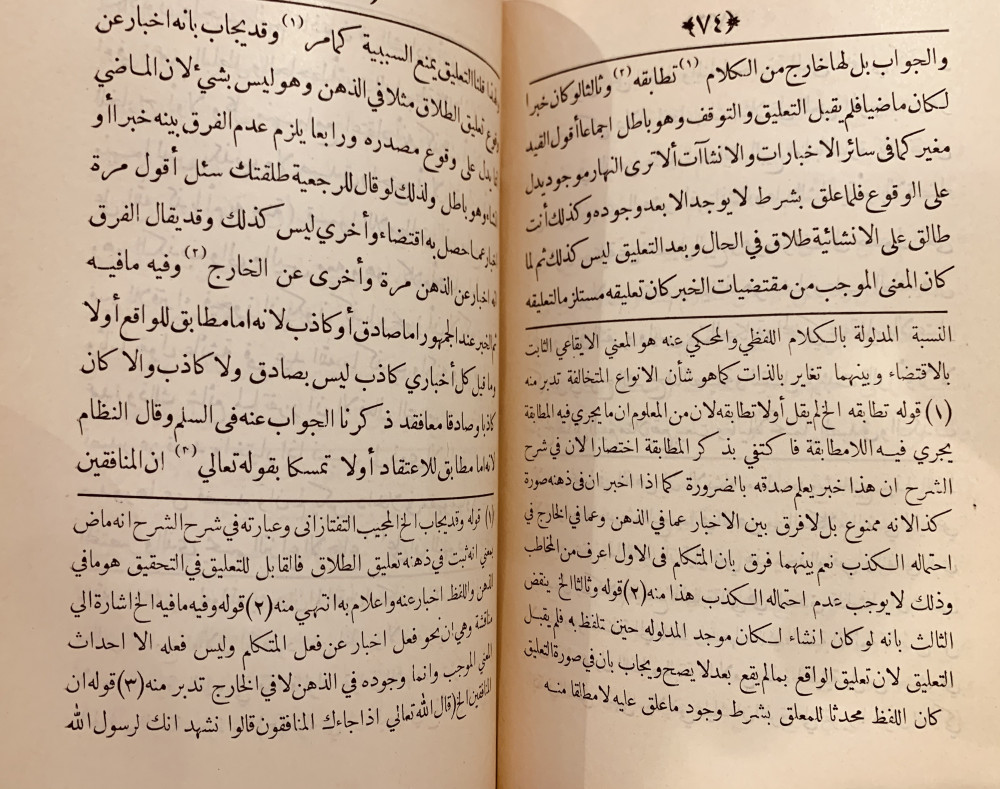 ﴿٧٤﴾
والجواب بل لها خارج من الكلام (١) تطابقه (٢) وثالثا لو كان خبرا
لكان ماضيا فلم يقبل التعليق والتوقف وهو باطل اجماعا أقول القيد
مغير كما فى سائر الاخبارات والانشاآت ألا ترى النهار موجود يدل
على الوقوع فلما علق بشرط لا يوجد الا بعد وجوده وكذلك أنت
طالق على الانشائية طلاق في الحال وبعد التعليق ليس كذلك ثم لما
كان المعنى الموجب من مقتضيات الخبر كان تعليقه مستلزما لتعليقه
النسبة المدلولة بالكلام اللفظي والمحكي عنه هو المعنى الايقاعي الثابت
بالاقتضاء وبينهما تغاير بالذات كما هو شأن الانواع المتخالفة تدبر منه
(١) قوله تطابقه الخ لم يقل أولا تطابقه لان من المعلوم ان ما يجري فيه المطابقة
يجري فيه اللامطابقة فاكتفي بذكر المطابقة اختصارا لان في شرح
الشرح ان هذا خبر يعلم صدقه بالضرورة كما اذا اخبر ان فى ذهنه صورة
كذا لانه ممنوع بل لا فرق بين الاخبار عما في الذهن وعما في الخارج في
احتماله الكذب نعم بينهما فرق بان المتكلم فى الاول اعرف من المخاطب
وذلك لا يوجب عدم احتماله الكذب هذا منه (٢) قوله وثالثا الخ ينقض
الثالث بانه لو كان انشاء لكان موجد المدلوله حين تلفظ به فلم يقبل
التعليق لان تعليق الواقع بما لم يقع بعد لا يصح ويجاب بان في صورة التعليق
كان اللفظ محدثا للمعلق بشرط وجود ما علق عليه لا مطالقا منه
ولهذا قلنا التعليق يمنع السببية كما مر (١) وقد يجاب بانه اخبار عن
وقوع تعليق الطلاق مثلا في الذهن وهو ليس بشيء لان الماضي
يدل على وقوع مصدره ورابعا يلزم عدم الفرق بينه خبرا أو
وهو باطل ولذلك لو قال للرجعية طلقتك سئل أقول مرة
اخبار عما حصل به اقتضاء وأخري ليس كذلك وقد يقال الفرق
انه اخبار عن الذهن مرة وأخرى عن الخارج (٢) وفيه ما فيه
ثم الخبر عند الجمهور اما صادق أو كاذب لانه اما مطابق للواقع أولا
وما قيل كل أخباري كاذب ليس بصادق ولا كاذب والا كان
كاذبا وصادقا معا فقد ذكرنا الجواب عنه فى السلم وقال النظام
لانه اما مطابق للاعتقاد أولا تمسكا بقوله تعالي (٣) ان المنافقين
(١) قوله وقد يجاب الخ المجيب التفتازانى وعبارته في شرح الشرح انه ماض
بمعني انه ثبت في ذهنه تعليق الطلاق فالقابل للتعليق في التحقيق هو ما في
الذهن واللفظ اخبار عنه واعلام به انتهي منه (٢) قوله وفيه ما فيه الخ اشارة الي
مناقشة وهي ان نحو فعل اخبار عن فعل المتكلم وليس فعله الا احداث
المعني الموجب وانما وجوده في الذهن لا في الخارج تدبر منه (٣) قوله ان
المنافقين الخ (قال الله تعالي اذا جاءك المنافقون قالوا نشهد انك لرسول الله